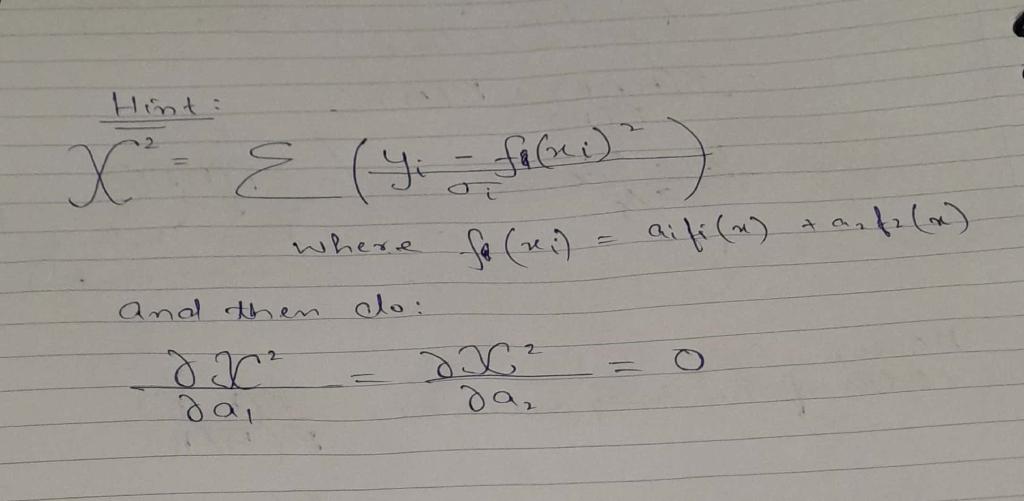 Hint:
χ² = Σ (yi - f(xi)² / σi)
where f(xi) = aifi(x) + a2f2(x)
and then do:
∂χ²/∂a1 = ∂χ²/∂a2 = 0